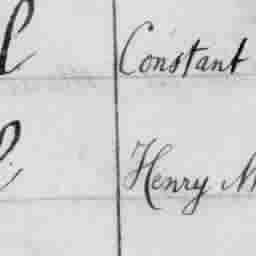 Constant
Henry M